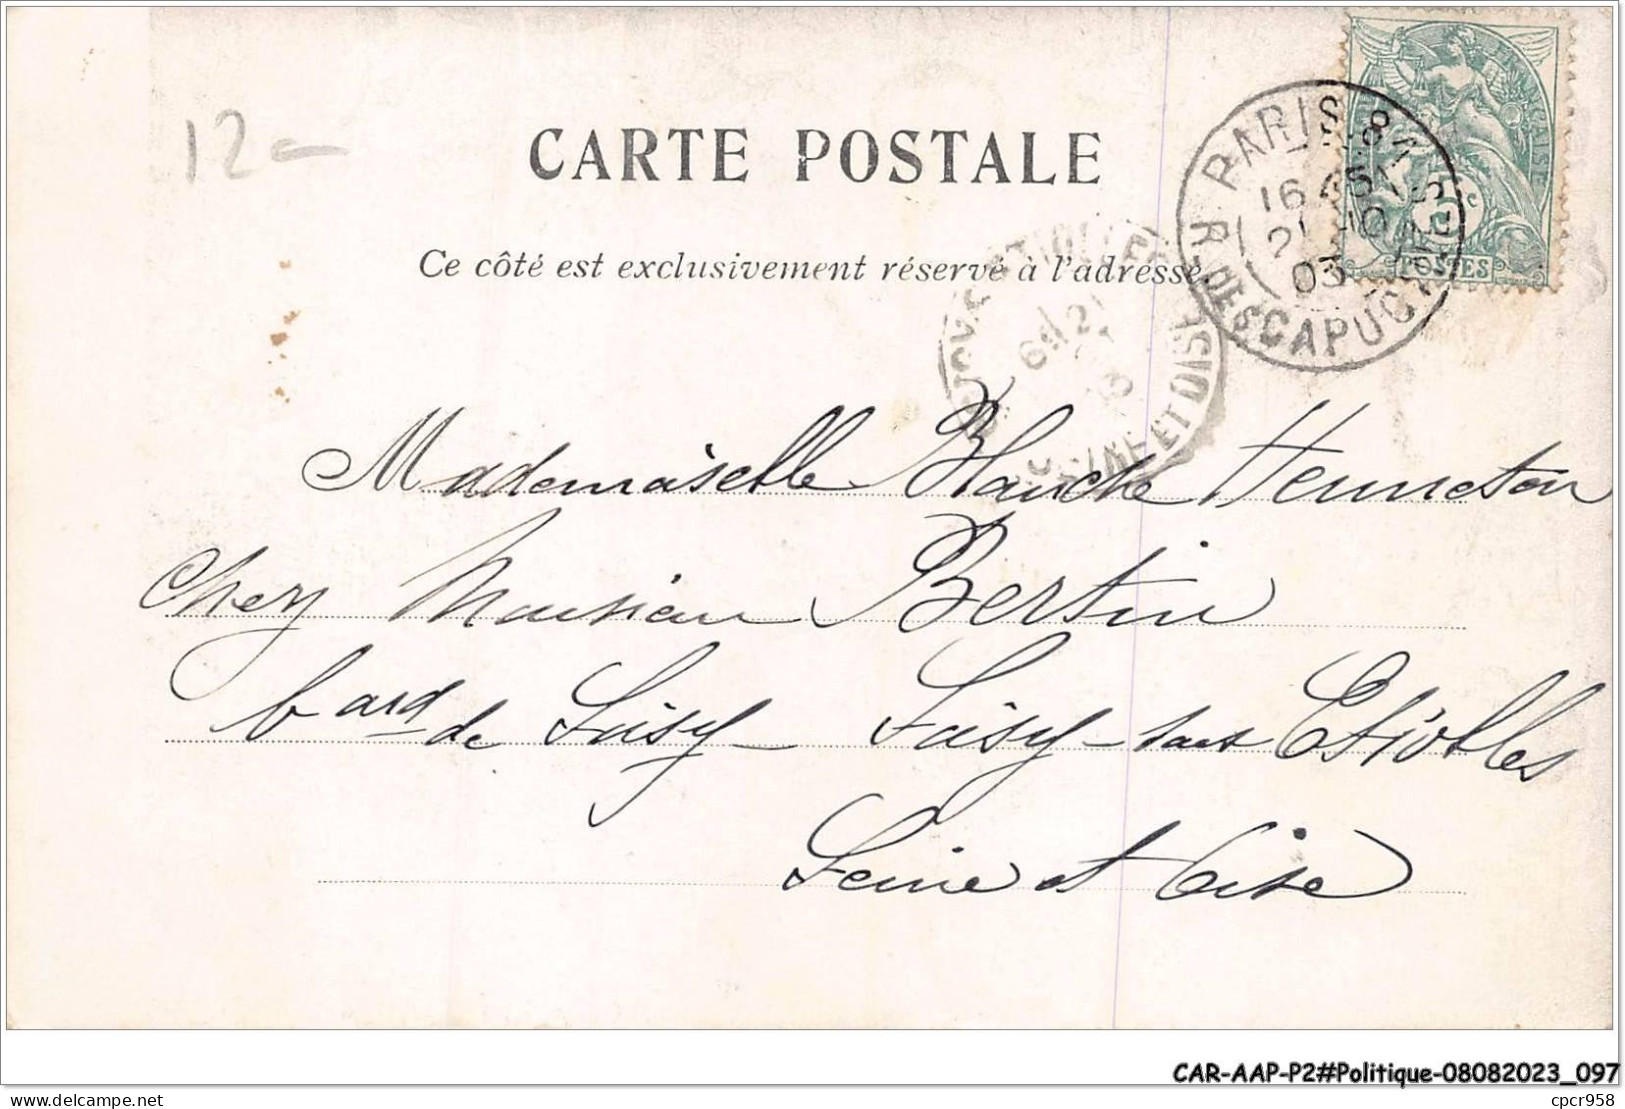 12-
CARTE POSTALE
Ce côté est exclusivement réservé à l'adresse.
PARIS.81
R. DES CAPUCINES
16 45
21 -10
03
POSTES
5c
SEINE ET OISE
Mademoiselle Blanche Henneton
Chez Monsieur Bertin
bard de Soisy - Soisy-sous Etiolles
Seine et Oise
CAR-AAP-P2#Politique-08082023_097
delcampe.net
cpcr958